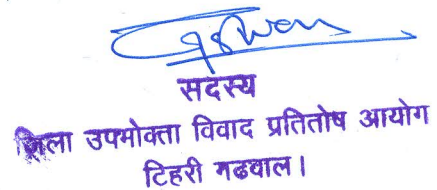 सदस्य
जिला उपभोक्ता विवाद प्रतितोष आयोग
टिहरी गढवाल।